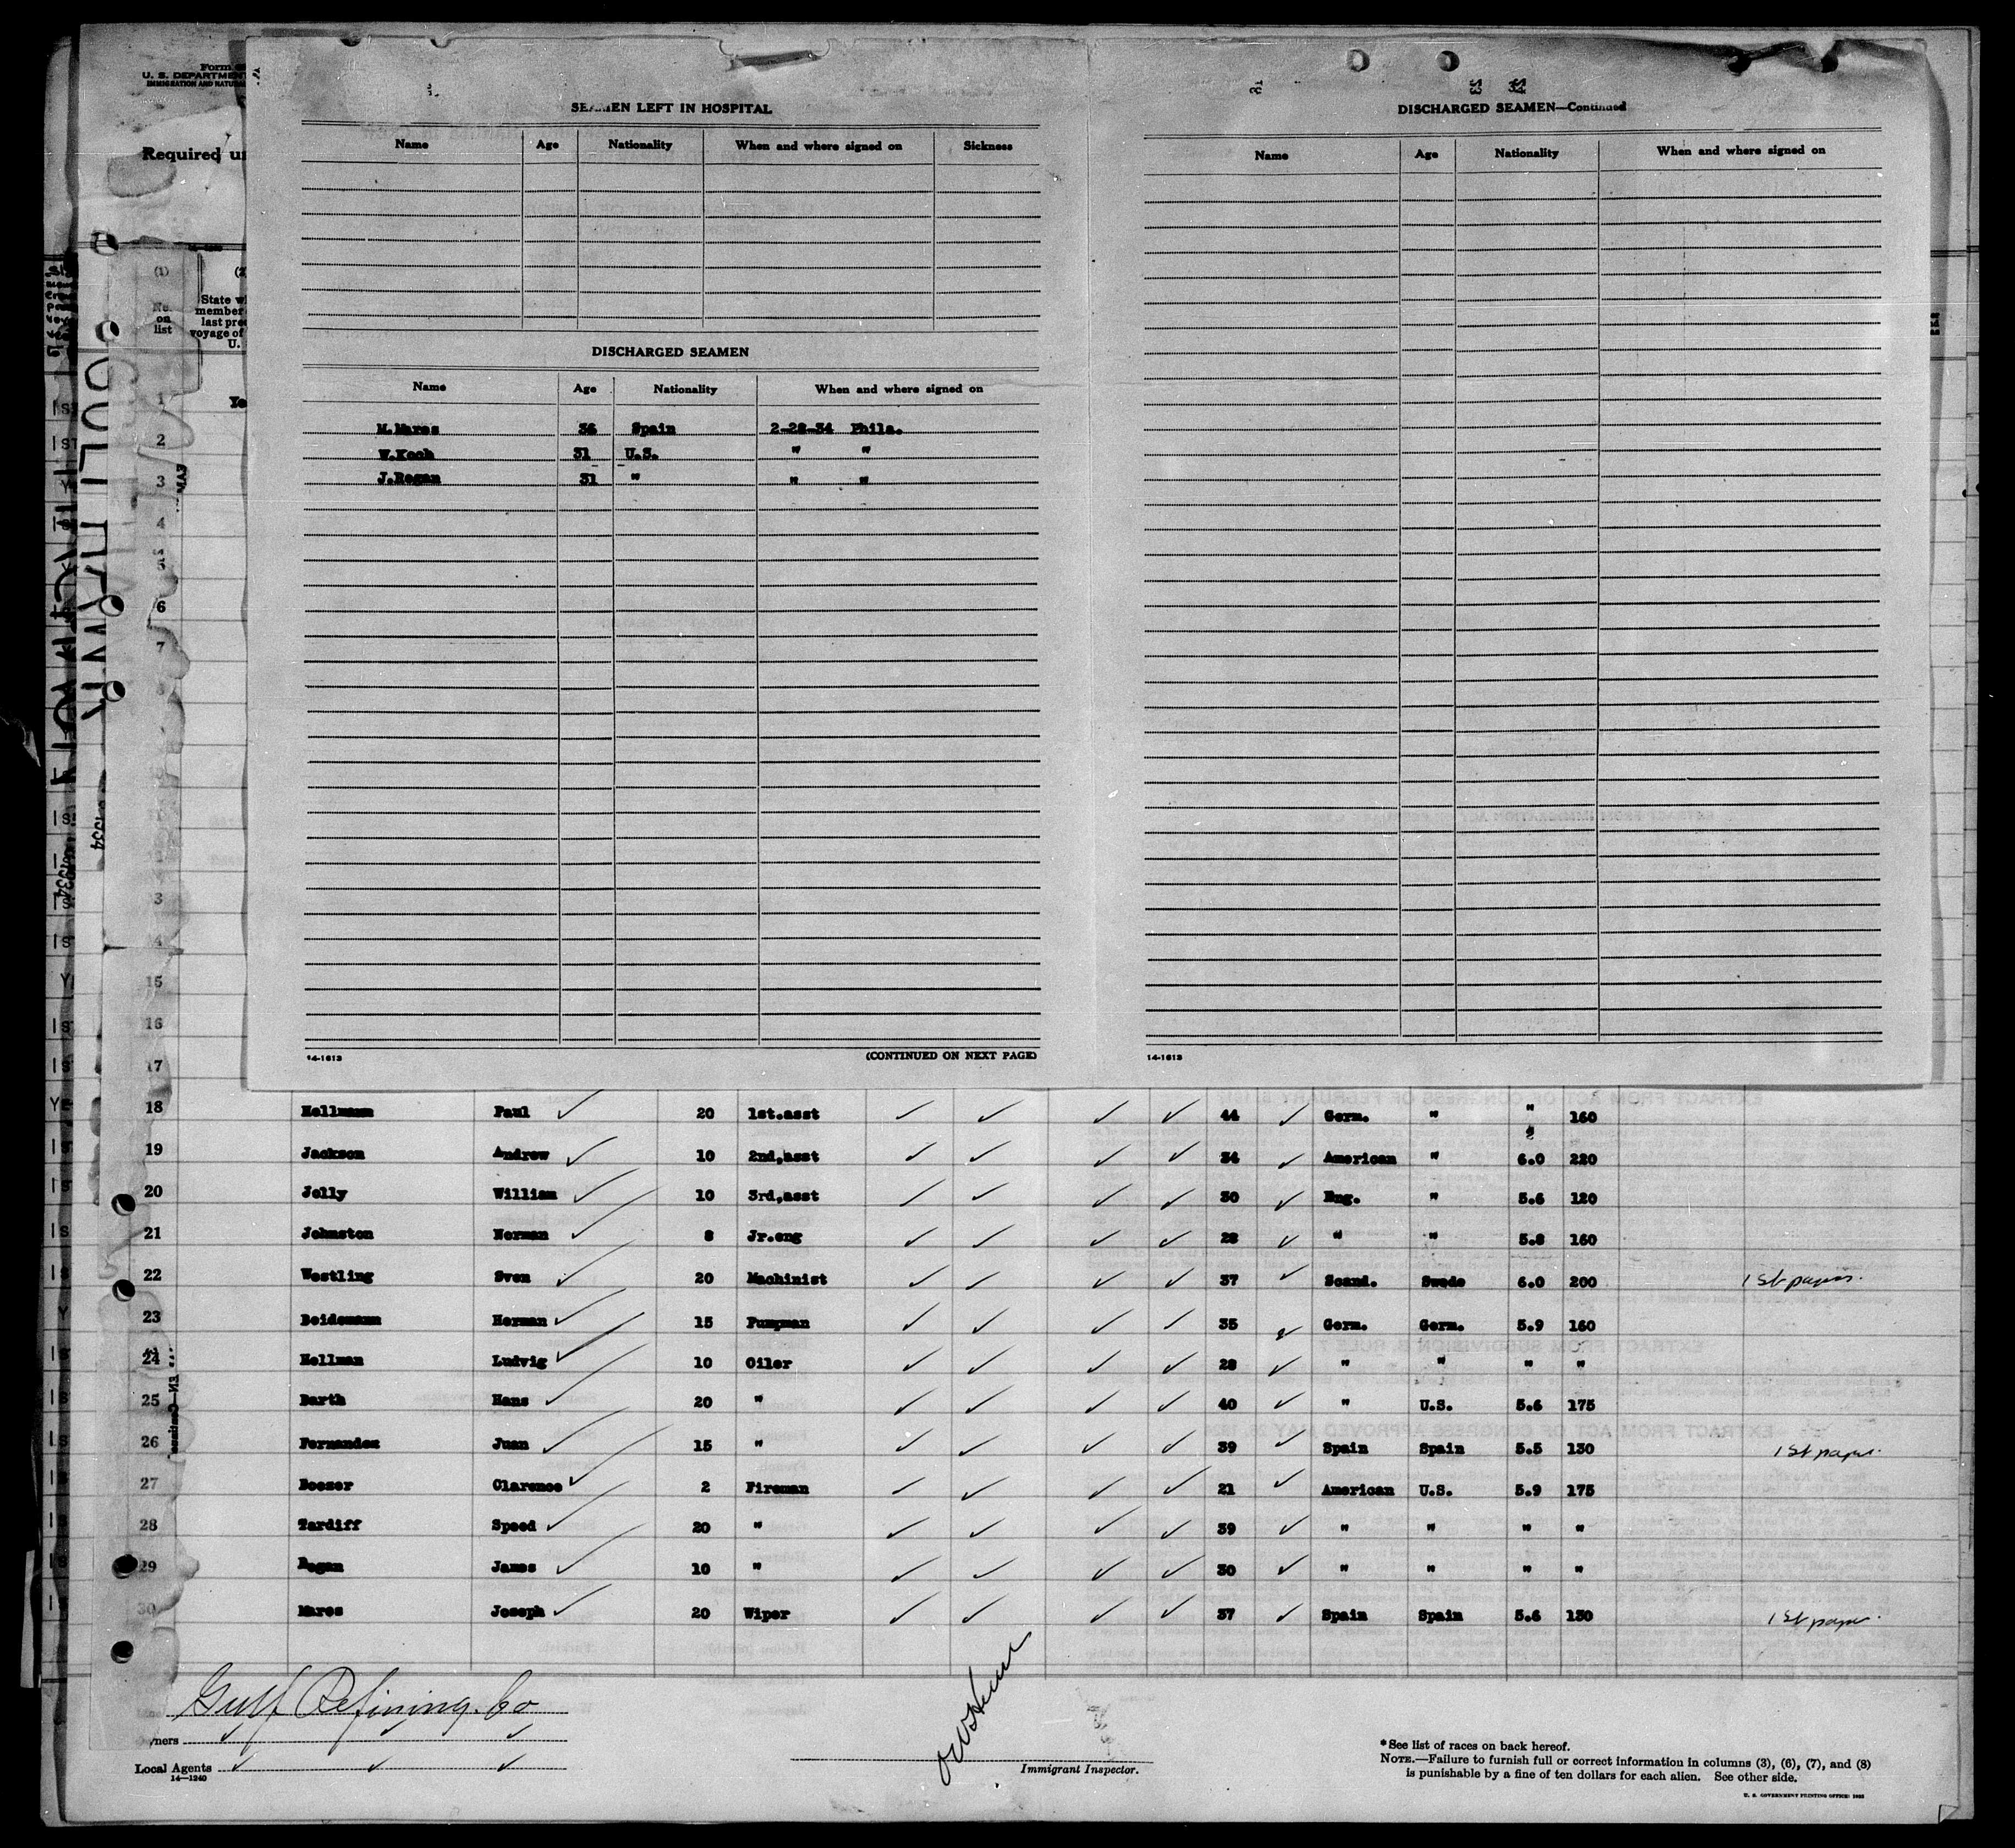 Form
U. S. DEPARTMENT
IMMIGRATION AND NATURAL
Required un
(1)
No. on list
State w
member
last prec
voyage of
U.
SEAMEN LEFT IN HOSPITAL
Name Age Nationality When and where signed on Sickness
DISCHARGED SEAMEN
Name Age Nationality When and where signed on
M.Mares 36 Spain 2-28-34 Phila.
W.Koch 31 U.S. " "
J.Regan 31 " " "
14-1613 (CONTINUED ON NEXT PAGE)
DISCHARGED SEAMEN—Continued
Name Age Nationality When and where signed on
14-1613
1 Ye
2
3
4
5
6
7
3
15
16
17
18 Hellmann Paul 20 1st.asst 44 Germ. " " 160
19 Jackson Andrew 10 2nd,asst 34 American " 6.0 220
20 Jolly William 10 3rd,asst 30 Eng. " 5.6 120
21 Johnston Norman 8 Jr.eng 28 " " 5.8 160
22 Westling Sven 20 Machinist 37 Scand. Swede 6.0 200 1st papers.
23 Beidemann Herman 15 Pumpman 35 Germ. Germ. 5.9 160
24 Hellman Ludvig 10 Oiler 28 " " " "
25 Barth Hans 20 " 40 " U.S. 5.6 175
26 Fernandez Juan 15 " 39 Spain Spain 5.5 130 1st paper.
27 Beezer Clarence 2 Fireman 21 American U.S. 5.9 175
28 Tardiff Speed 20 " 39 " " " "
29 Regan James 10 " 30 " " " "
30 Mares Joseph 20 Wiper 37 Spain Spain 5.6 130 1st paper.
Gulf Refining. Co
wners
Local Agents
14—1240
Immigrant Inspector.
* See list of races on back hereof.
NOTE.—Failure to furnish full or correct information in columns (3), (6), (7), and (8)
is punishable by a fine of ten dollars for each alien. See other side.
U. S. GOVERNMENT PRINTING OFFICE: 1933